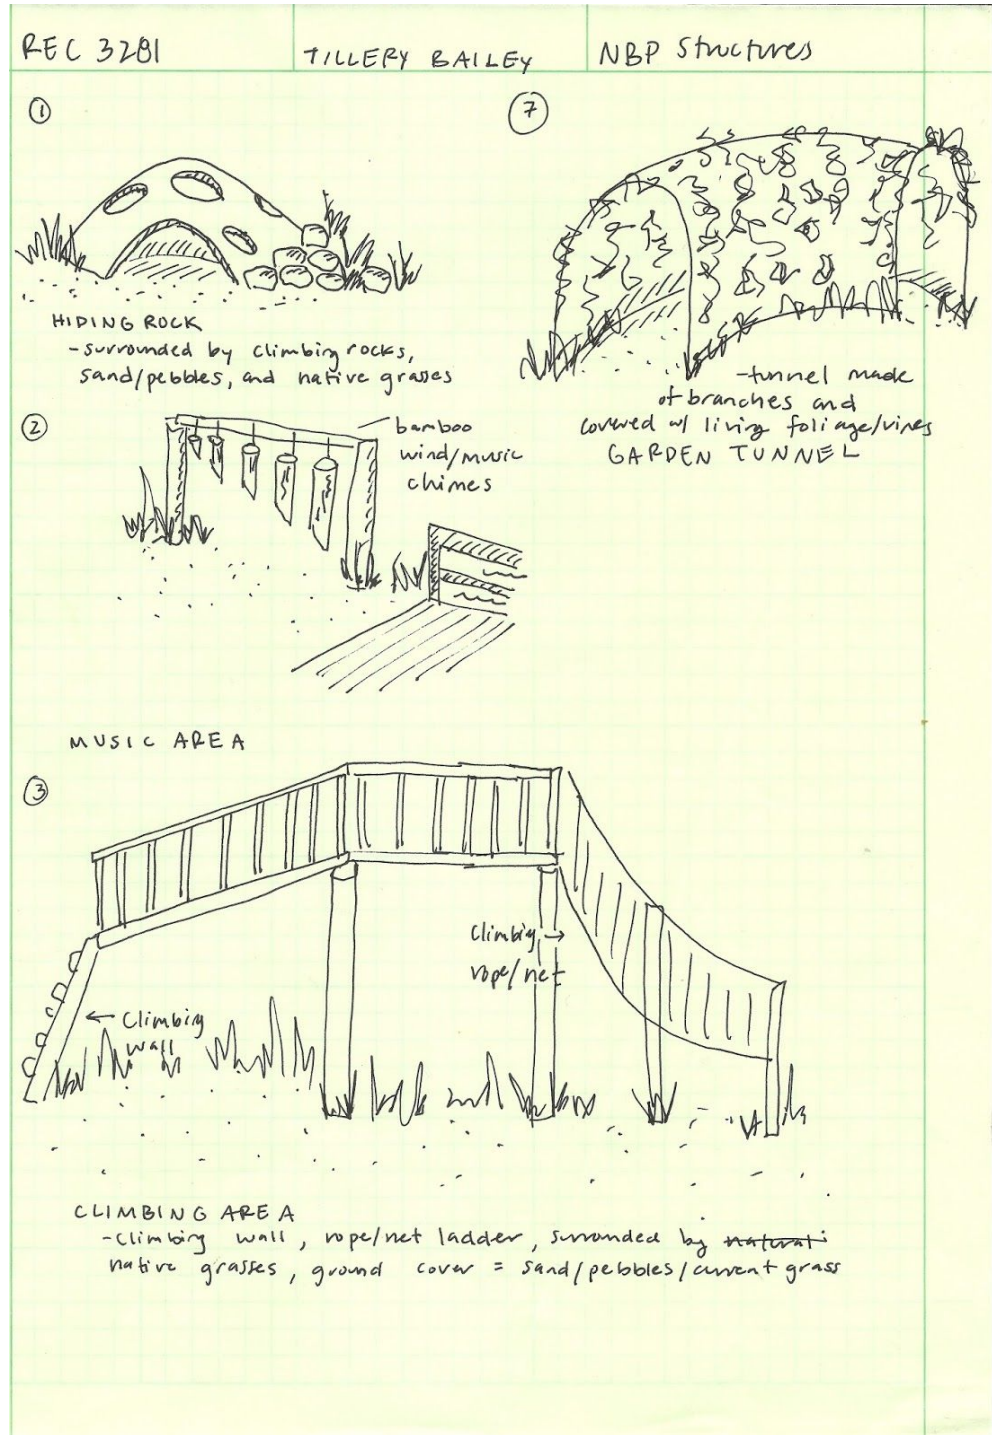 REC 3281
TILLERY BAILEY
NBP Structures
①
HIDING ROCK
-surrounded by climbing rocks,
sand/pebbles, and native grasses
②
bamboo
wind/music
chimes
MUSIC AREA
③
Climbing
rope/net
Climbing
wall
CLIMBING AREA
-Climbing wall, rope/net ladder, surrounded by natural
native grasses, ground cover = sand/pebbles/current grass
⑦
-tunnel made
of branches and
covered w/ living foliage/vines
GARDEN TUNNEL